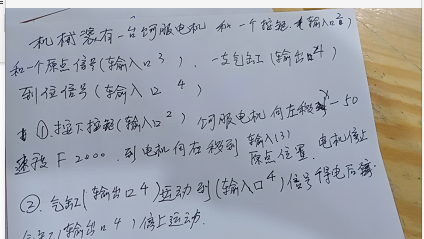 机械装有一台伺服电机和一个按钮(输入口2)
和一个原点信号(输入口3).一支气缸(输出口4)
到位信号(输入口4)
①.按下按钮(输入口2)伺服电机向左移 -50
速段F2000.到电机向右移到输入(3)原点位置.电机停止
②.气缸(输出口4)运动到(输入口4)信号得电后
气缸(输出口4)停止运动.